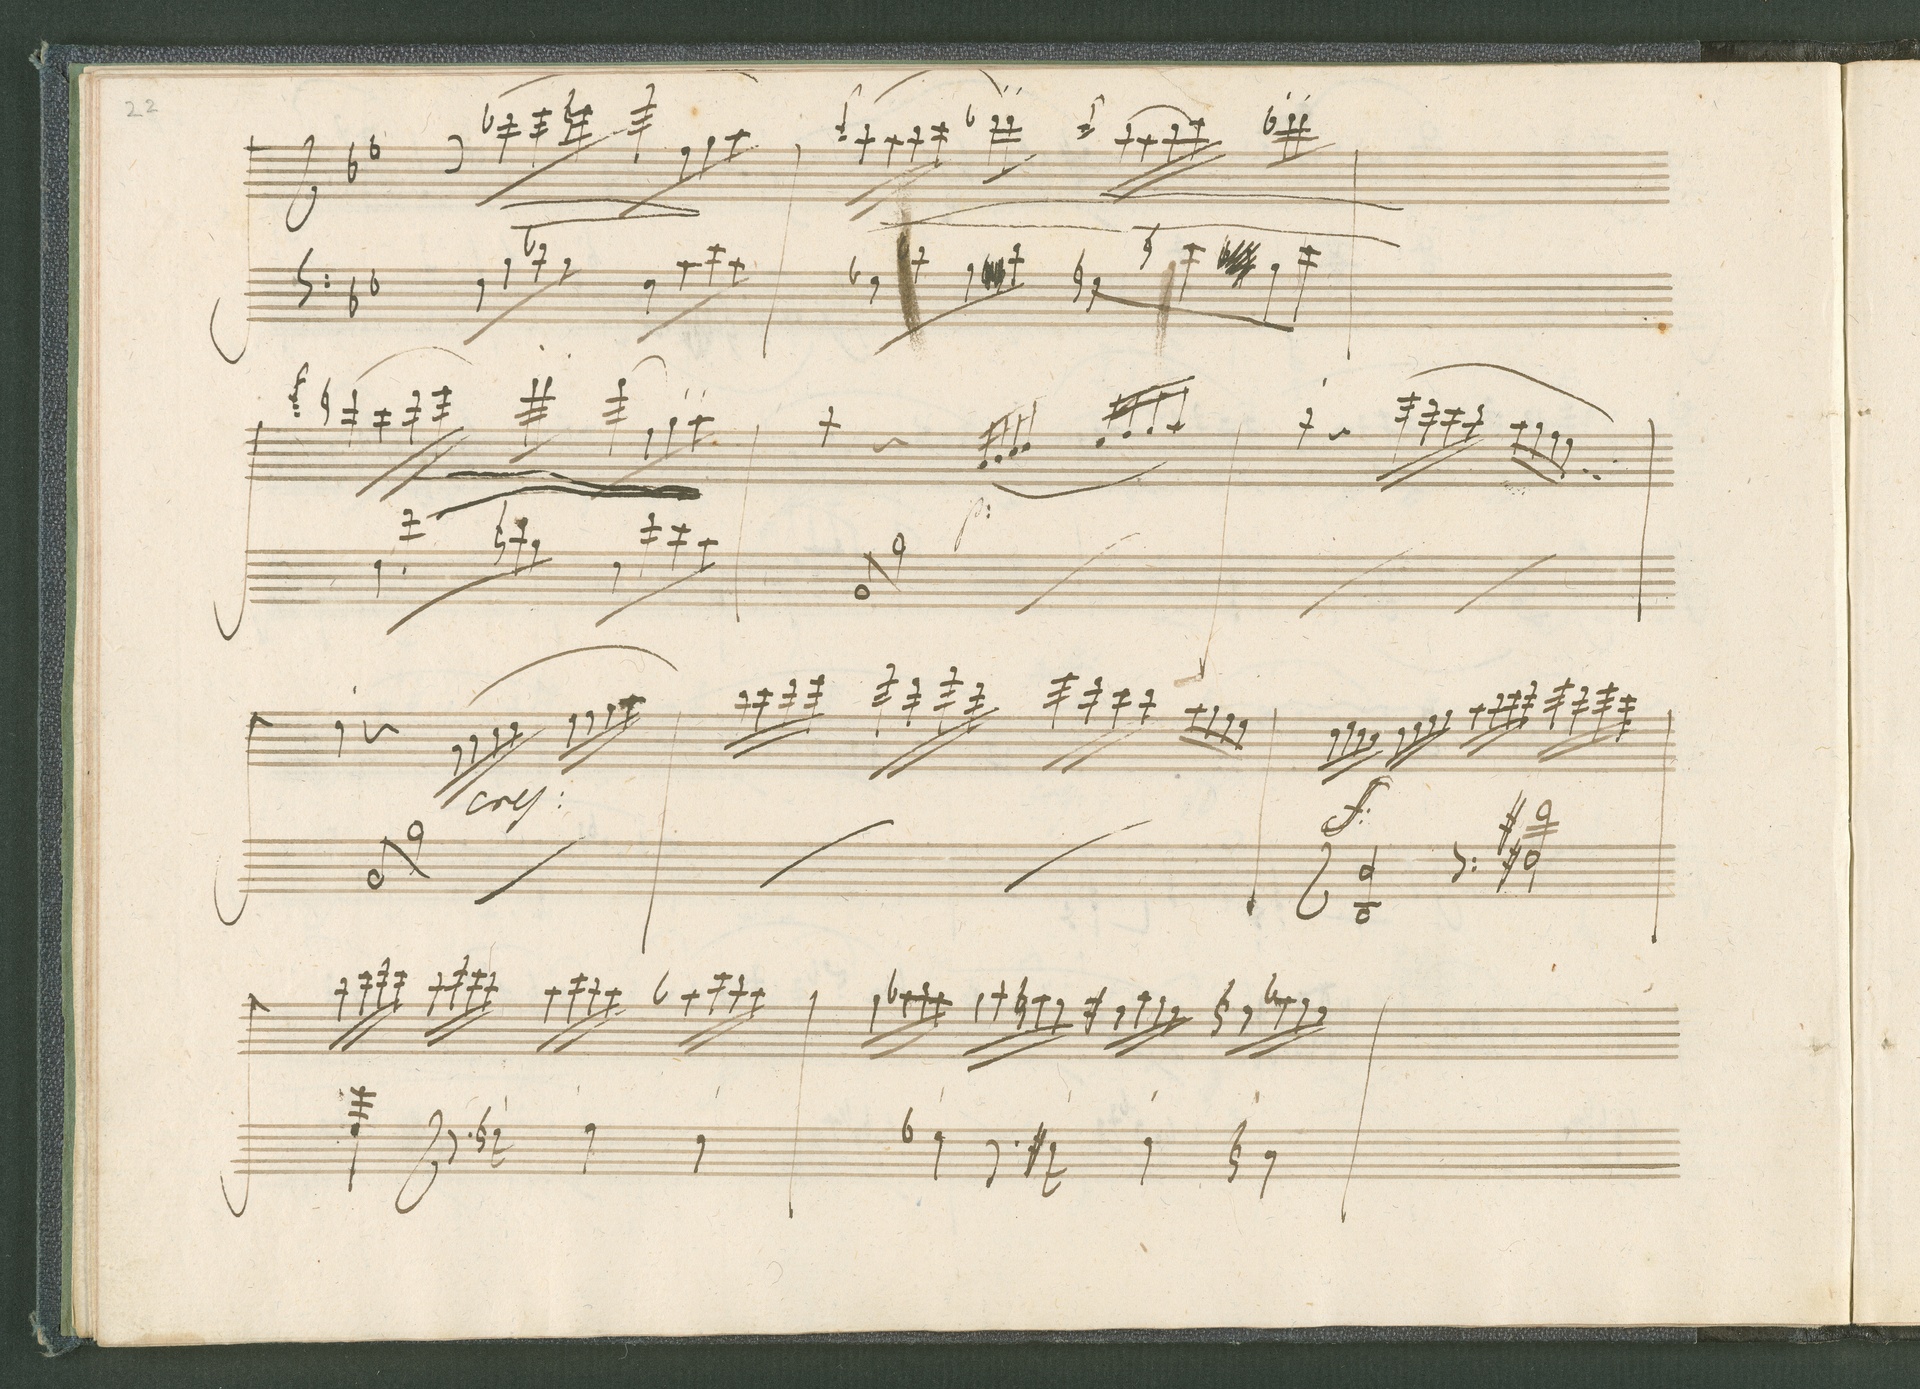 22
p:
cresc:
f: